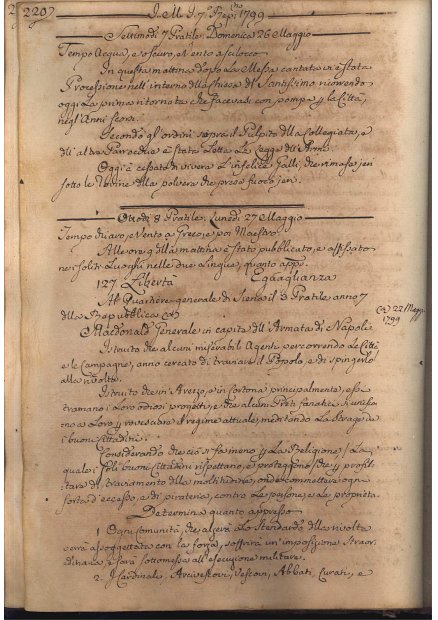 220
I. M. I. 7.º Rep: 1799
Settimadì 7 Pratile. Domenica 26 Maggio
Tempo Acqua, e oscuro, e Vento a scilocco
In questa mattina dopo la Messa cantata vi è stata
Processione nell'interno della Chiesa del Santissimo ricorrendo
oggi la prima ritornata che facevasi con pompa per la Città,
negl'Anni scorsi.
Secondo gl'ordini sopra il Pulpito della Collegiata, e
dell'altra Parrochia è stata Letta la Legge dell'Armi.
Oggi è cessato di vivere l'infelice Galli, che rimase jeri
sotto le rovine della polvera che prese fuoco jeri.
Ottodì 8 Pratile. Lunedì 27 Maggio
Tempo chiaro, e Vento a Greco, e poi Maestro
Alle ore 9 della mattina è stato pubblicato, e affissato
ne' soliti Luoghi nelle due Lingue, quanto app.
127 Libertà Eguaglianza
Al Quartiere generale di Siena il 3 Pratile anno 7
della Repubblica (a)
(a) 22 Maggio
1799
Macdonald Generale in capite dell'Armata di Napoli
Istruito che alcuni miserabili Agenti percorrendo le Città
e le Campagne, anno cercato di traviare il Popolo, e di spingerlo
alla rivolta.
Istruito che in Arezzo, e in Cortona principalmente, essi
tramano i Loro odiosi progetti, e che alcuni Preti fanatici si uniscono
a Loro per rovesciare il regime attuale, meditando la Strage de
i buoni Cittadini.
Considerando che ciò si fa meno per la Religione / La
quale i soli buoni Cittadini rispettano, e proteggono / che per profittare
del traviamento della moltitudine, onde commettere ogni
sorta d'eccesso, e di pirateria, contro le persone, e le proprietà.
Determina quanto appresso
1. Ogni Comunità, che alzerà lo Stendardo della rivolta
verrà assoggettata con la forza, soffrirà un'imposizione straordinaria,
e sarà sottomessa all'esecuzione militare.
2. I Cardinali, Arcivescovi, Vescovi, Abbati, Curati, e